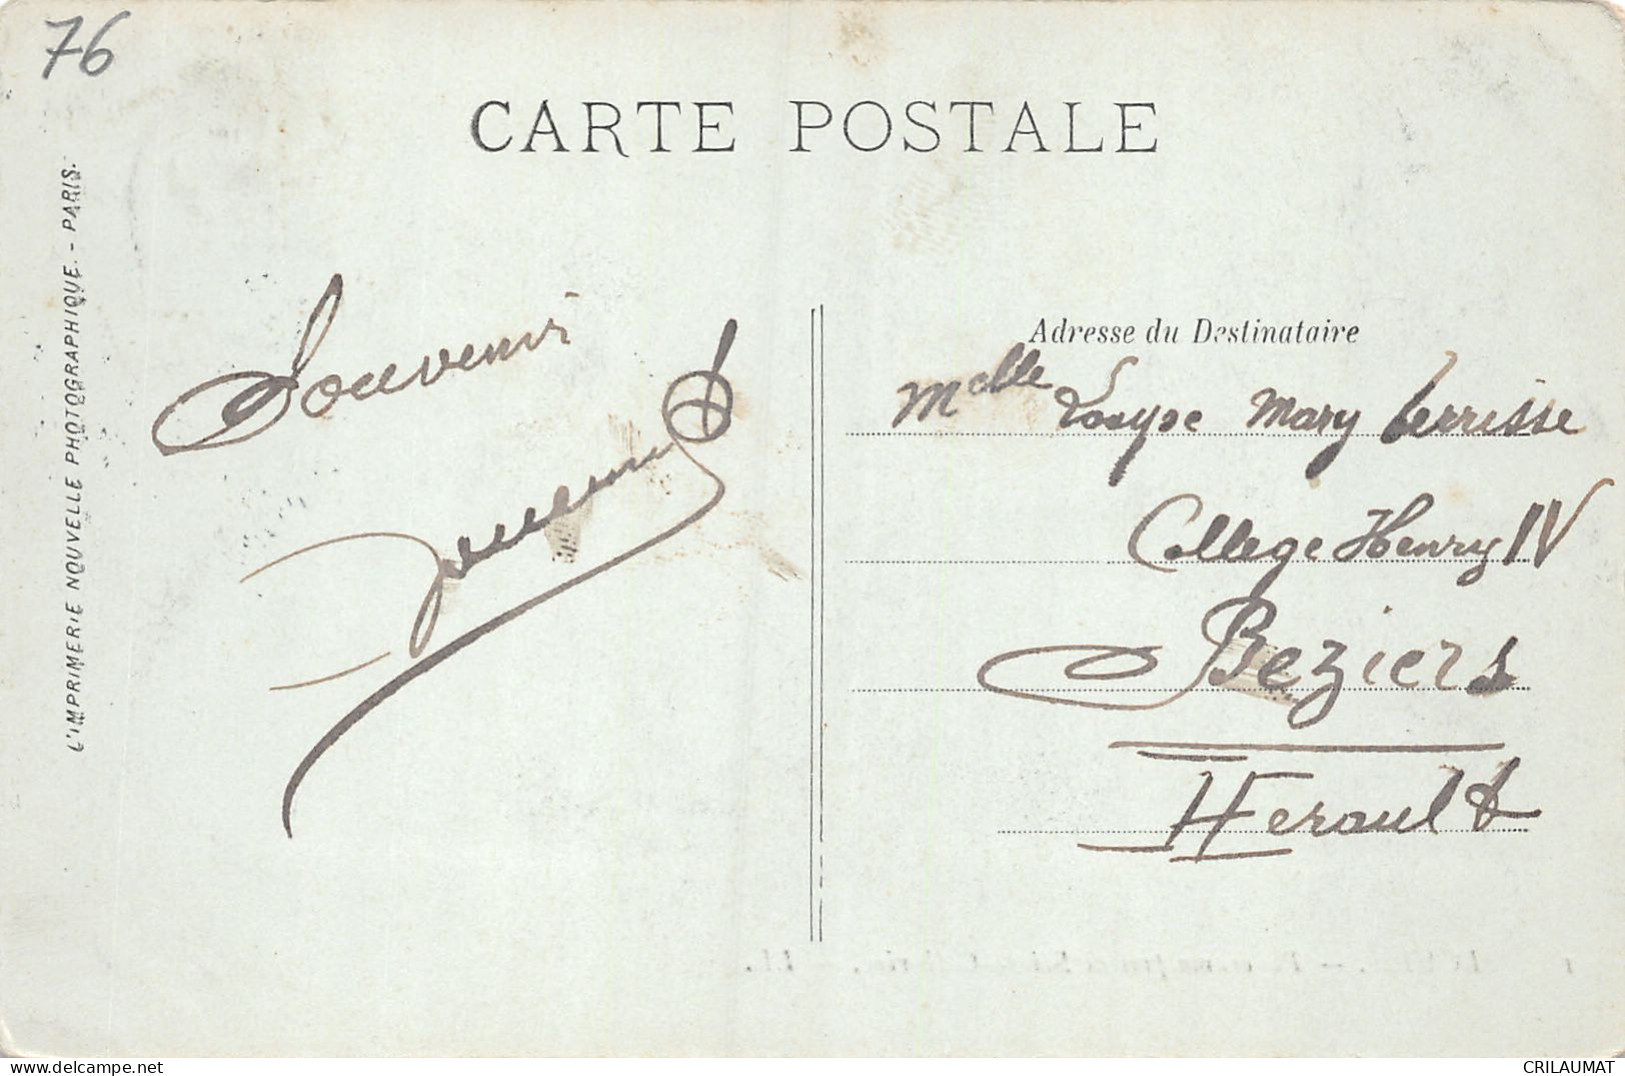 76
CARTE POSTALE
L'IMPRIMERIE NOUVELLE PHOTOGRAPHIQUE. - PARIS.
Souvenir
Adresse du Destinataire
Melle Mary
College Henry IV
Beziers
Herault
CRILAUMAT